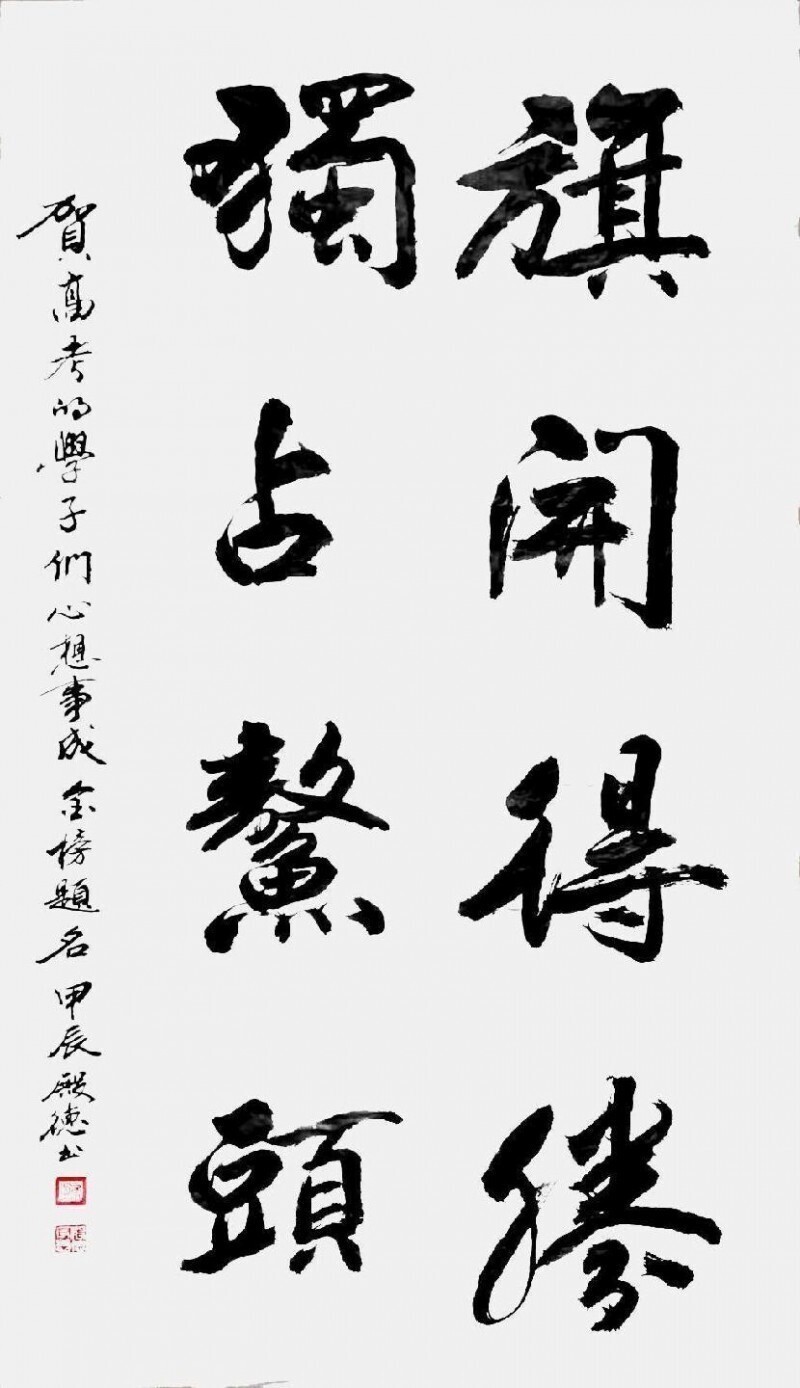 旗開得勝
獨占鰲頭
賀高考的學子們心想事成金榜題名甲辰殿德书